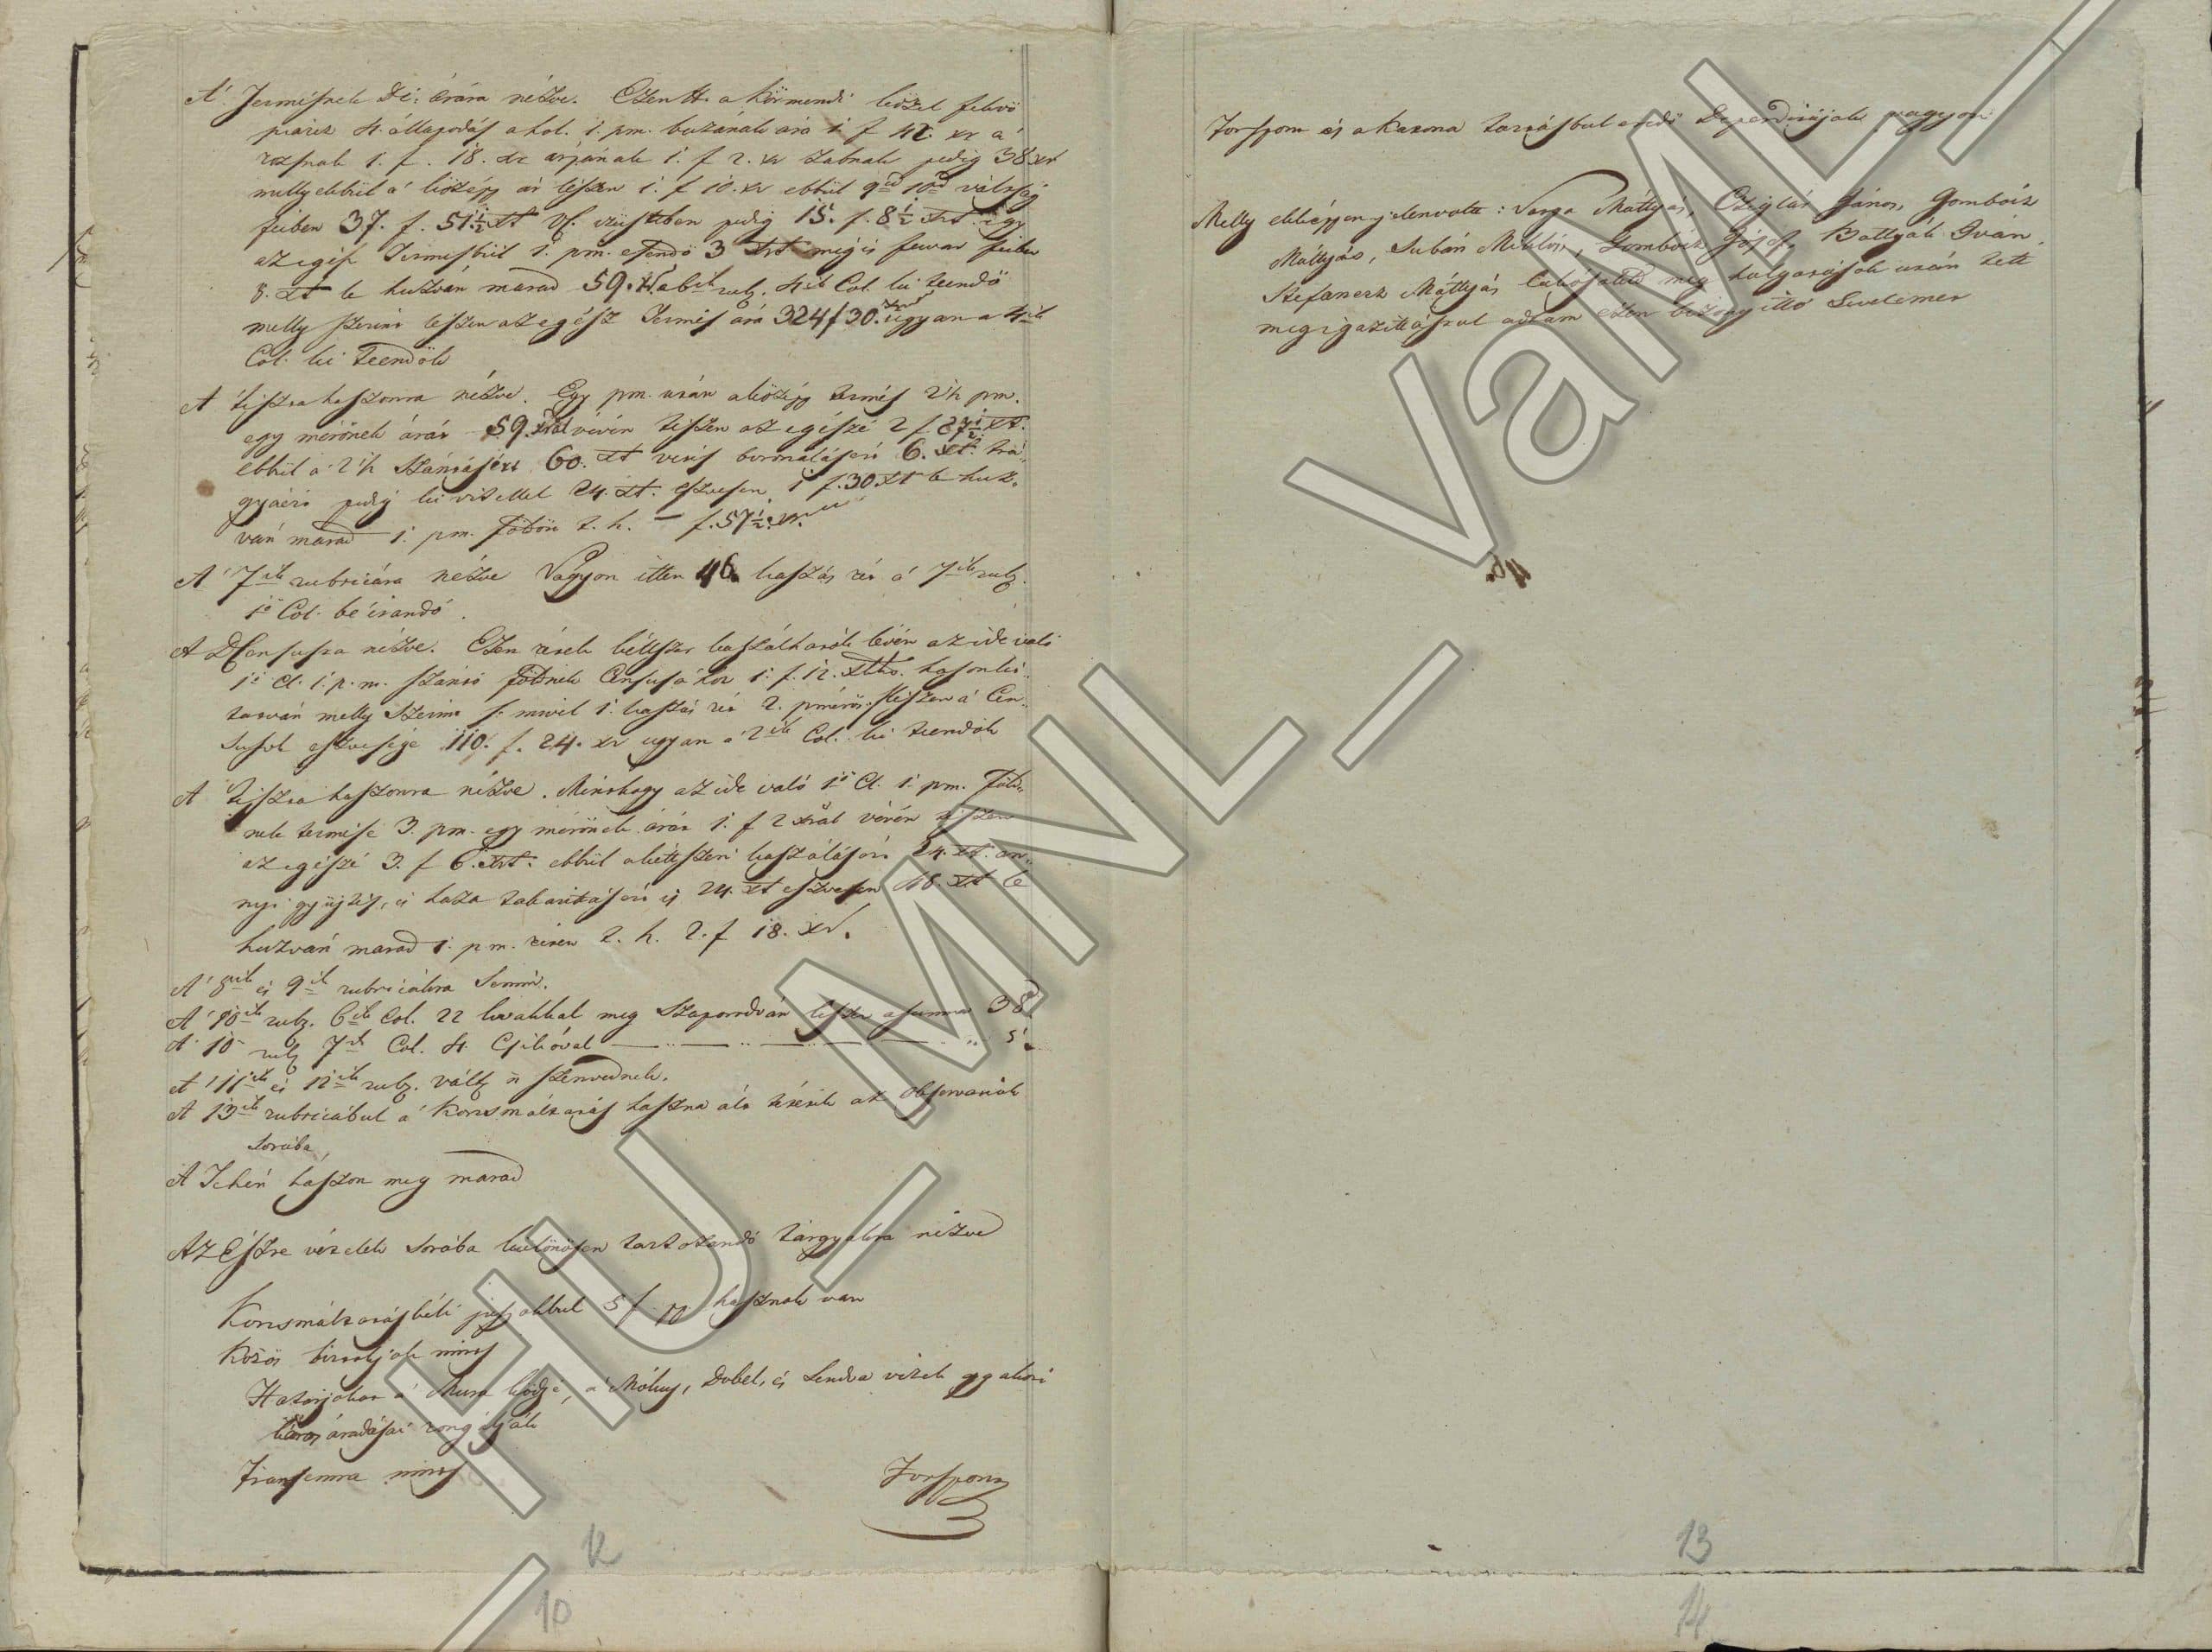 A' Termésnek Di: árára nézve. Ezen Hr. a Körmendi közel fekvö
piacz 4. állapodás ahol. 1. pm. buzának ára 1 f 42. xr a'
rozsnak 1. f. 18. xr árpának 1. f 2. xr zabnak pedig 38 xr
mellyekbül a' középp ár lészen 1. f 10. xr ebbül 9ed 10ed váltság
feiben 37. f. 51½ xt Vf. ezüstben pedig 15. f. 8½ xrt így
az egész Termésbül 1. pm. esendö 3 xrt még is fuvar feiben
8. xt le huzván marad 59. xr a 6ik rub. 4ik Col. ki teendö
melly szerint leszen az egész Termés ára 324 f 30. xr ugyan a 4ik
Col. ki teendök
A tiszta haszonra nézve. Egy pm. után a középp termés 2½ pm.
egy mérönek árát 59. xral vévén tészen az egészé 2 f. 27½ xt.
ebbül a' 2½ szántásért 60. xt vetés boronálásért 6. xt. trá-
gyáért pedig ki vitellel 24. xt. eszvesen 1 f. 30 xt le huz-
ván marad 1. pm. Födön t. h. — f. 57½ xr.
A' 7ik rubricára nézve Vagyon itten 46. kaszás rét a' 7ik rub.
1ö Col. beirandó.
A Censusra nézve. Ezen rétek kétszer kaszálhatók lévén az ide való
1ö Cl. 1. p. m. szántó Födnek Censusához 1. f. 12. xthoz hasonlít-
tatván melly szerint s mivel 1. kaszás rét 2. pmérös tészen a' Cen-
susok eszvesége 110. f. 24. xr ugyan a' 2ik Col. ki teendök
A tiszta haszonra nézve. Minthogy az ide való 1ö Cl. 1. pm. Föld-
nek termése 3. pm. egy mérönek árát 1. f 2 xral vévén tészen
az egészé 3. f 6. xrt. ebbül a kétszeri kaszálásért 24. xt. an-
nyi gyüjtés, és haza takarításért is 24. xt eszvesen 48. xt le
huzván marad 1. pm. réten t. h. 2. f 18. xr.
A' 8ik és 9ik rubricákra Semmi.
A' 10ik rub. 6ik Col. 22 lovakkal meg Szaporodván leszen a summa 38
A' 10 rub 7ik Col. 4. Csikóval — — — — 5.
A' 11ik és 12ik rub. vált n szenvednek.
A 13ik rubricábul a' Korcsmáltatás haszna át tétetik az Observatiók
sorába,
A Tehén haszon meg marad
Az Észre vételek sorába különösen tartozandó tárgyakra nézve
Korcsmáltatásbéli jussokbul 5 f 10 hasznok van
Közös birtokjok nincs
Határjokat a' Mura közzé, a' Mókus, Dobel, és Lendva vizek gyakori
káros áradásai rongálják
Transenna nincs
Forspont
Forspont és a Katona tartásbul eredö Deperditájok vagyon
Melly ekképpen jelenvolt: Varga Mátyás, Cziglár János, Gombócz
Mátyás, Subán Miklós, Gombócz Jósef, Battyák Iván,
Stefanecz Mátyás lakósokat meg halgatások után tett
megigazittásrul adtam ezen bizonyittó Levelemet
46.
12
10
13
14
HU_MNL_VaML_